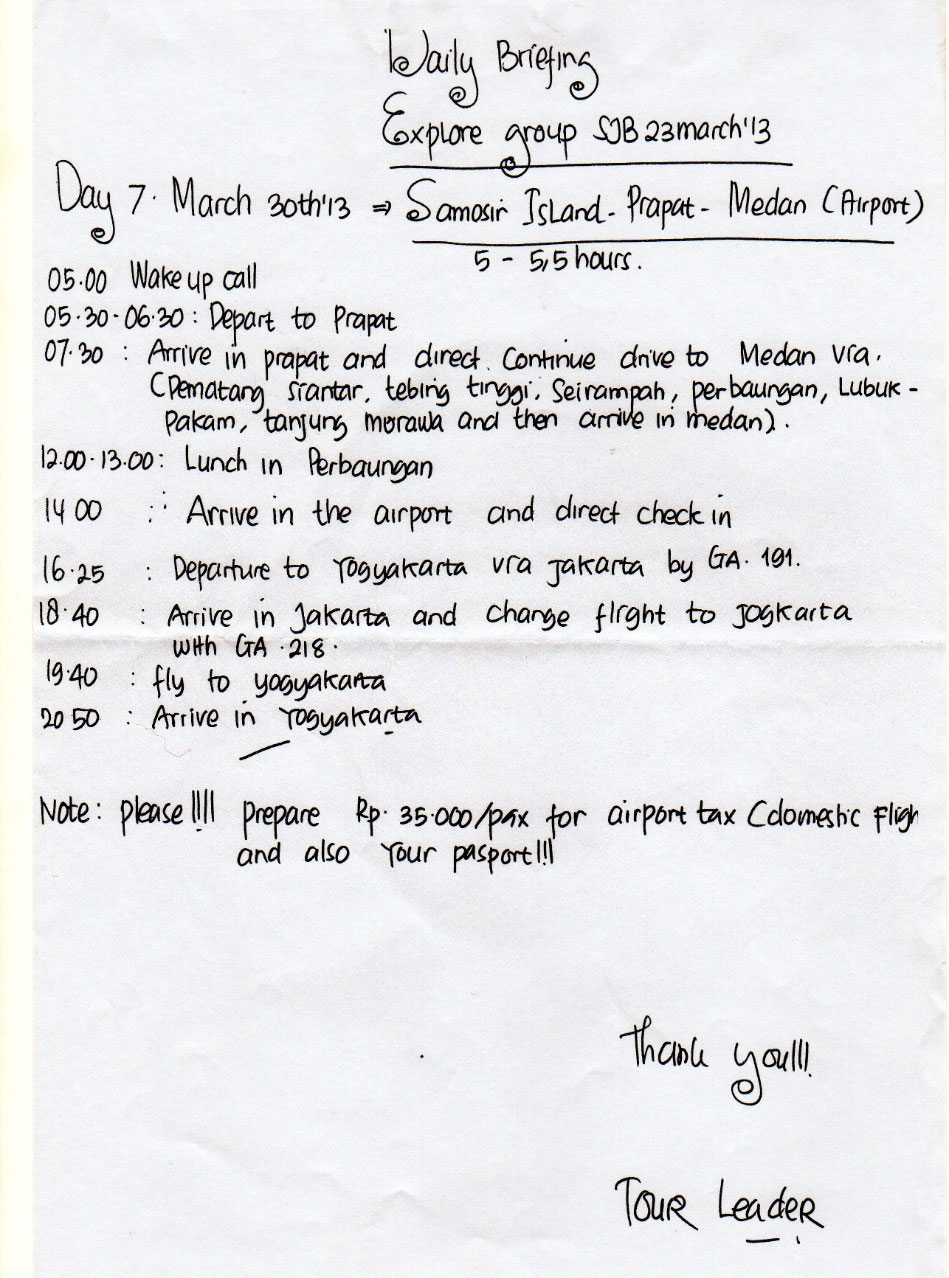 Daily Briefing
Explore group SJB 23march'13
Day 7. March 30th'13 ⇒ Samosir Island - Prapat - Medan (Airport)
5 - 5,5 hours.
05.00 Wake up call
05.30-06.30 : Depart to Prapat
07.30 : Arrive in prapat and direct continue drive to Medan via.
(Pematang siantar, tebing tinggi, Seirampah, perbaungan, Lubuk-
Pakam, tanjung morawa and then arrive in medan).
12.00-13.00 : Lunch in Perbaungan
14 00 : Arrive in the airport and direct check in
16.25 : Departure to Yogyakarta via jakarta by GA. 191.
18.40 : Arrive in Jakarta and change flight to jogkarta
with GA.218.
19.40 : fly to yogyakarta
20 50 : Arrive in Yogyakarta
Note: please !!!! prepare Rp. 35.000/pax for airport tax (domestic fligh
and also Your pasport!!!
Thank you!!!
Tour Leader